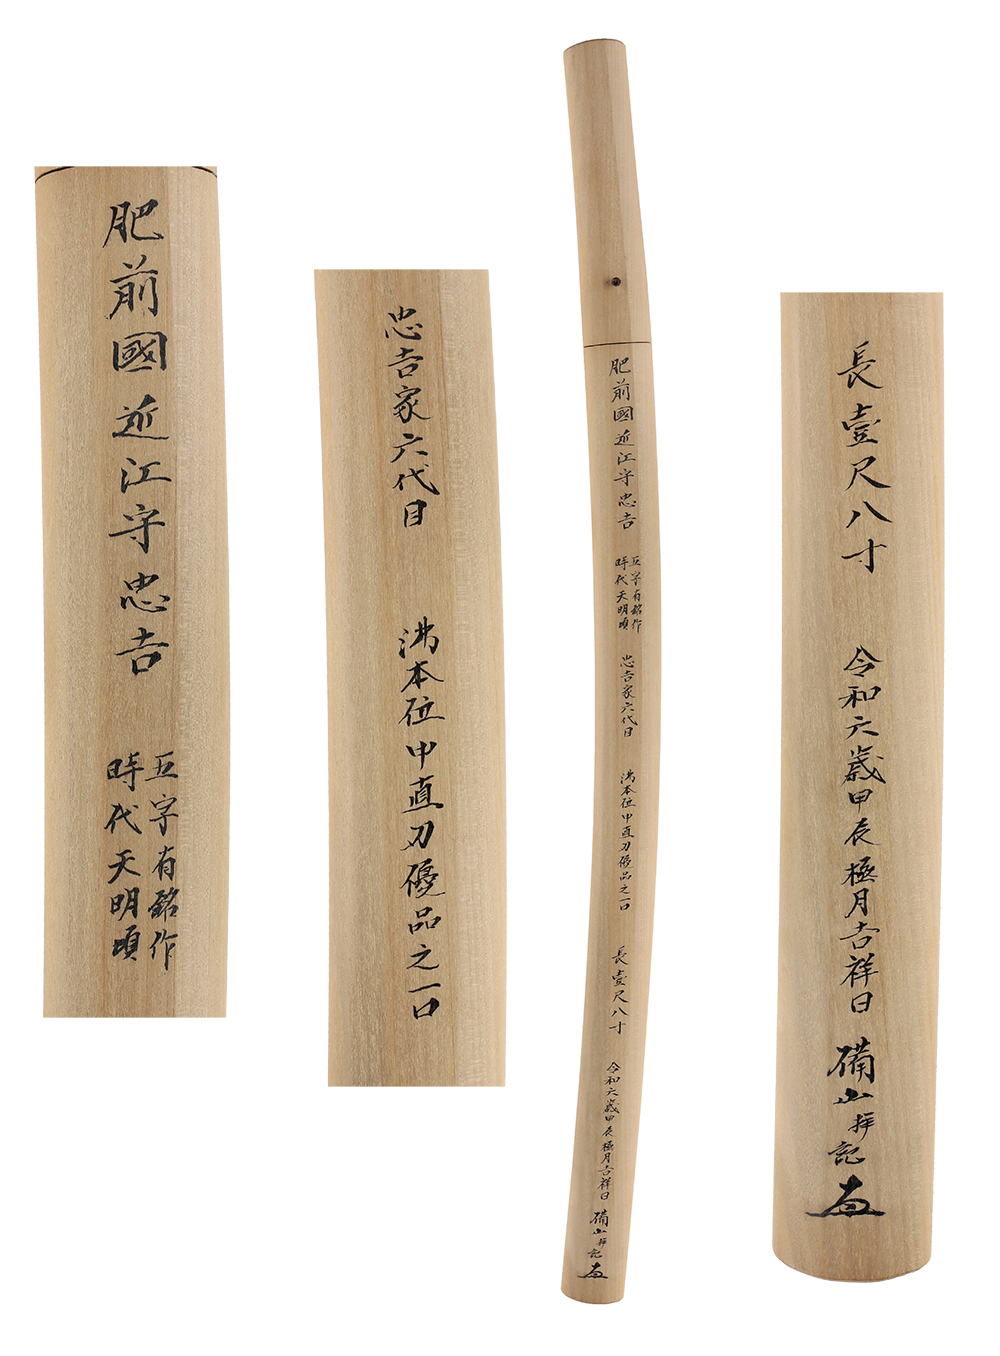 肥前國近江守忠吉
五字有銘作
時代天明頃
忠吉家六代目
沸本位中直刃優品之一口
長壹尺八寸
令和六歳甲辰極月吉祥日
備山拝記
肥前國近江守忠吉
五字有銘作
時代天明頃
忠吉家六代目
沸本位中直刃優品之一口
長壹尺八寸
令和六歳甲辰極月吉祥日
備山拝記